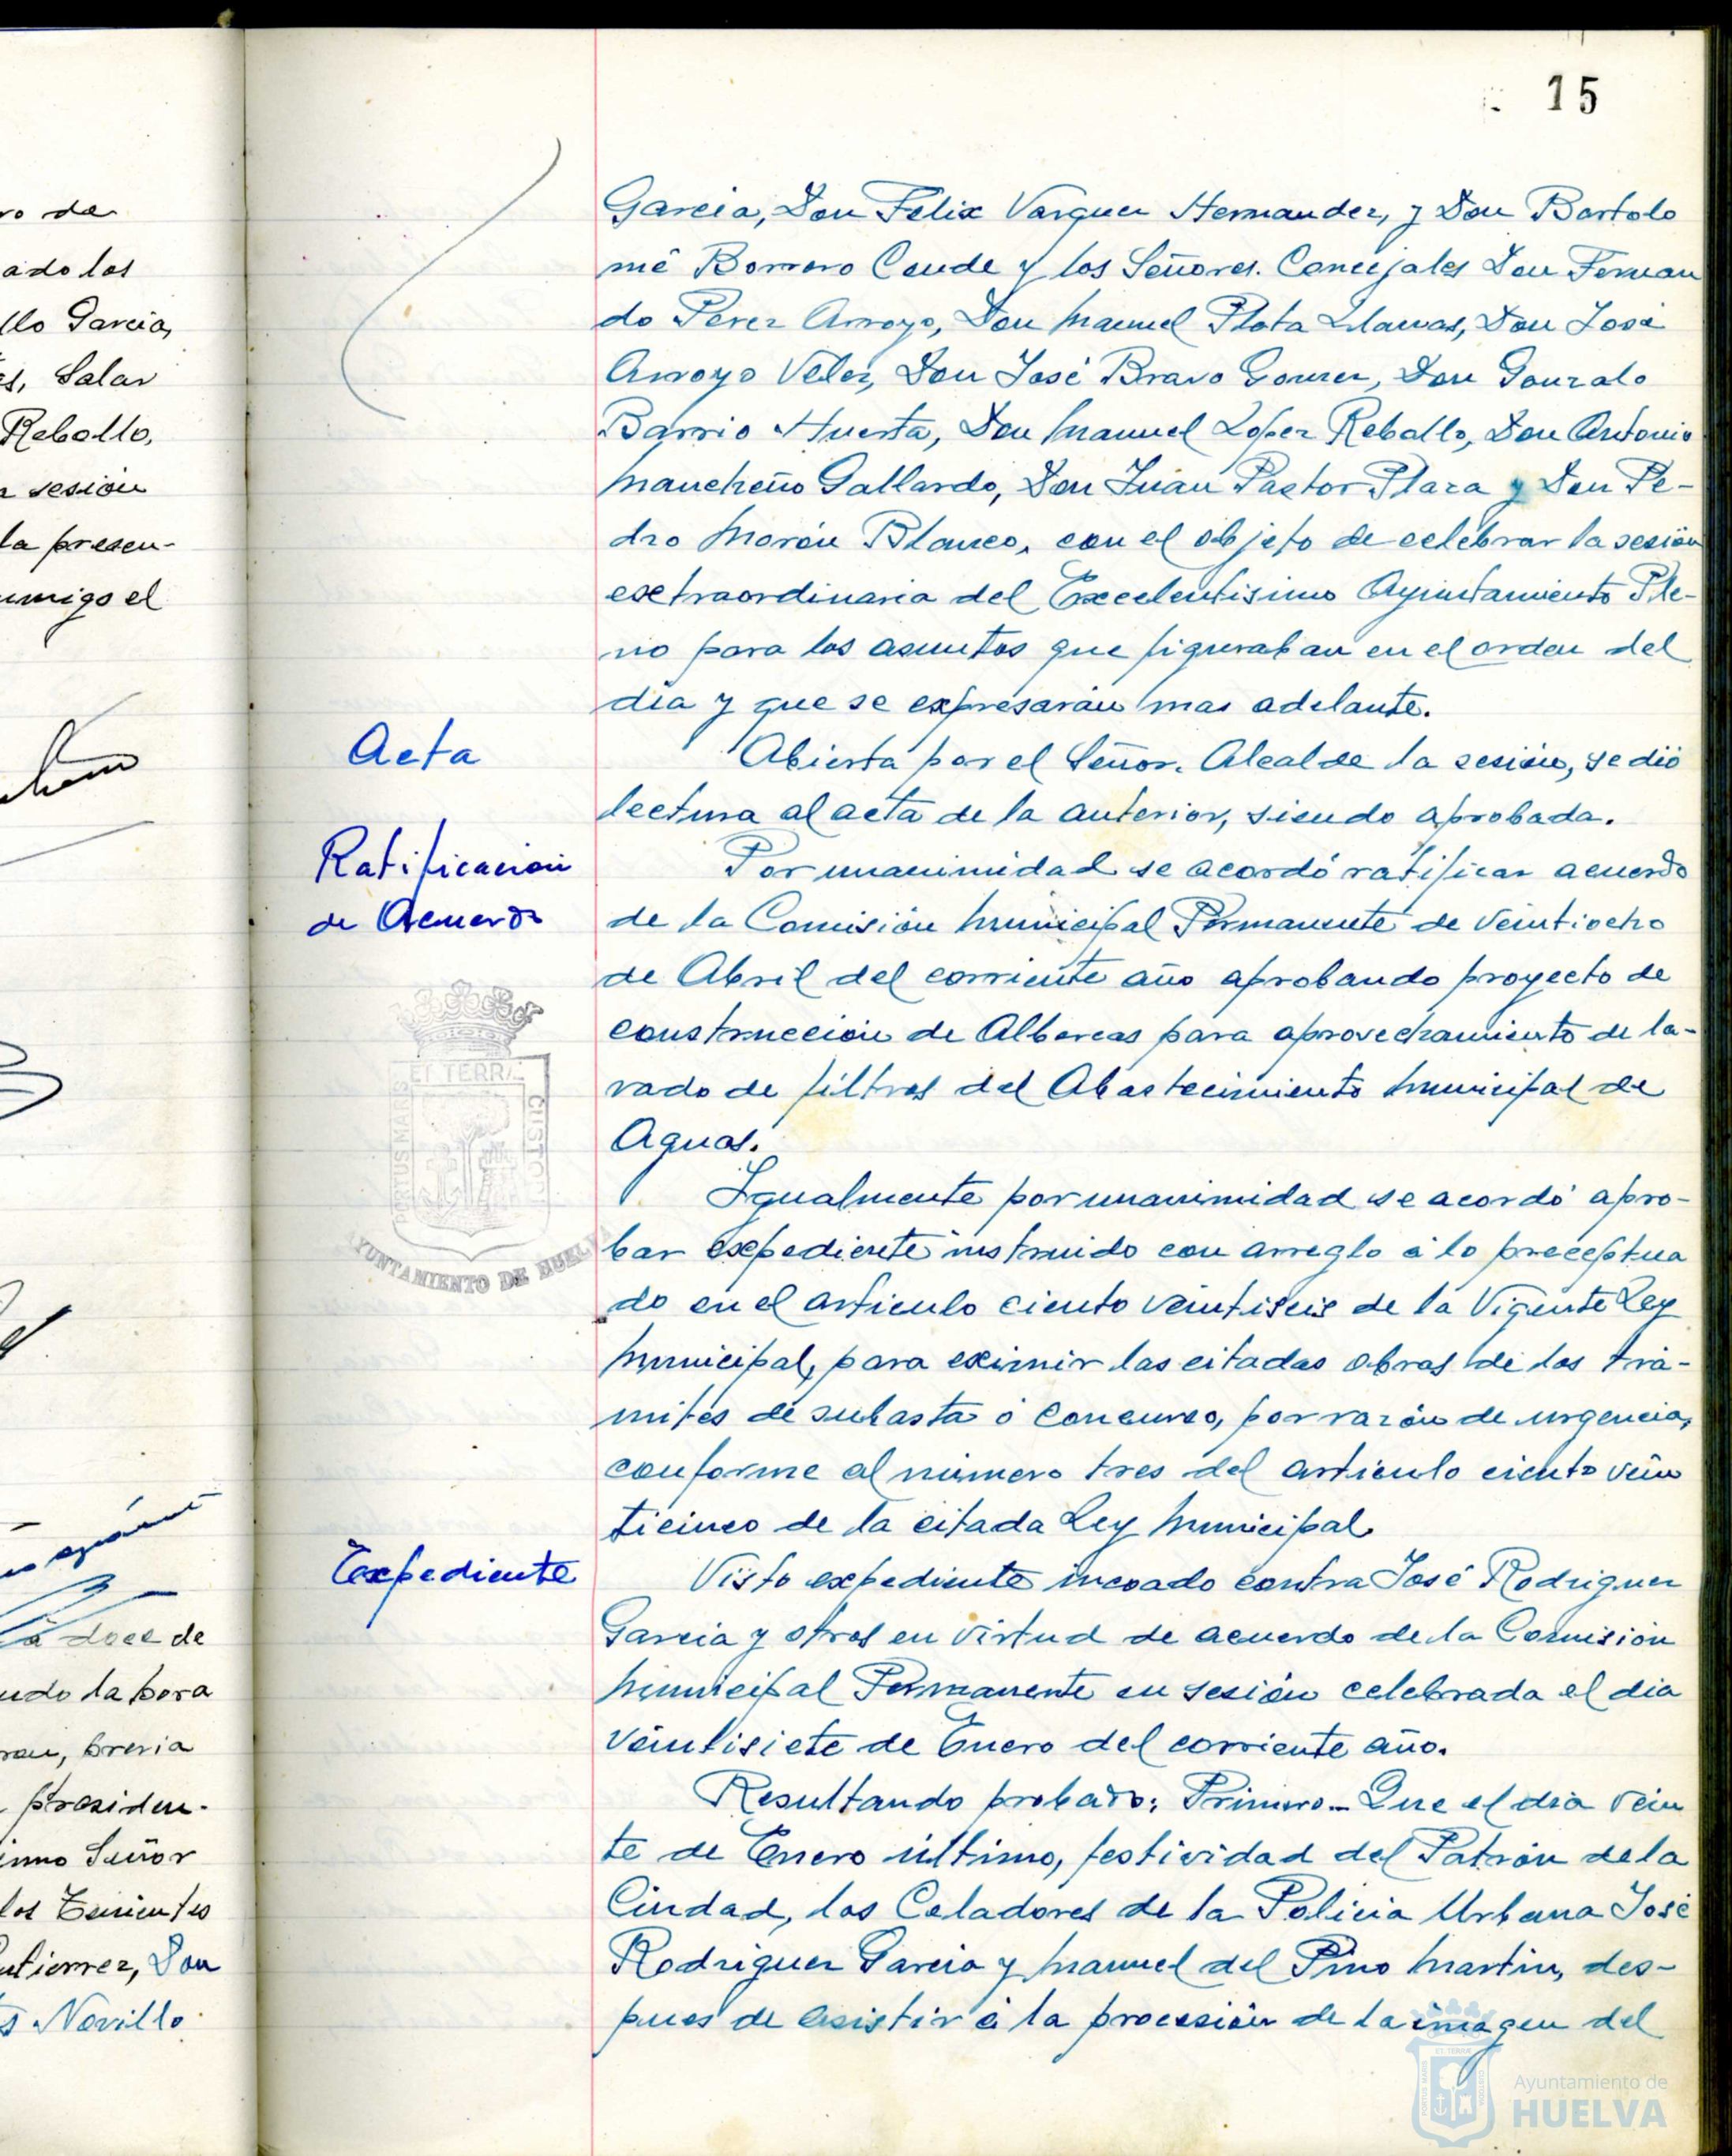 15
ro de
ado los
llo Garcia,
es, Salar
Rebollo,
a sesión
la presen-
umigo el
a doce de
ndo la hora
ron, previa
presiden-
imo Señor
los Tenientes
utierrez, Don
s Novillo
Garcia, Don Felix Vazquez Hernandez, y Don Bartolo
mé Borrero Conde y los Señores. Concejales Don Fernan
do Perez Arroyo, Don Manuel Plata Llamas, Don José
Arroyo Velez, Don José Bravo Gomez, Don Gonzalo
Barrio Huerta, Don Manuel Lopez Rebollo, Don Antonio
Mancheño Gallardo, Don Juan Pastor Plaza y Don Pe-
dro Morón Blanco, con el objeto de celebrar la sesión
extraordinaria del Excelentisimo Ayuntamiento Ple-
no para los asuntos que figuraban en el orden del
dia y que se expresarán mas adelante.
Acta
Abierta por el Señor. Alcalde la sesión, se dió
lectura al acta de la anterior, siendo aprobada.
Ratificación
de Acuerdo
Por unanimidad se acordó ratificar acuerdo
de la Comisión Municipal Permanente de veintiocho
de Abril del corriente año aprobando proyecto de
construcción de Albercas para aprovechamiento de la-
vado de filtros del Abastecimiento Municipal de
Aguas.
Igualmente por unanimidad se acordó apro-
bar expediente instruido con arreglo á lo preceptua
do en el articulo ciento veintiseis de la Vigente Ley
Municipal, para eximir las citadas obras de los trá-
mites de subasta ó concurso, por razón de urgencia,
conforme al número tres del articulo ciento vein
ticinco de la citada Ley Municipal.
Expediente
Visto expediente incoado contra José Rodriguez
Garcia y otros en virtud de acuerdo de la Comisión
Municipal Permanente en sesión celebrada el dia
veintisiete de Enero del corriente año.
Resultando probado: Primero.- Que el dia vein
te de Enero último, festividad del Patrón de la
Ciudad, los Celadores de la Policia Urbana José
Rodriguez Garcia y Manuel del Pino Martin, des-
pues de asistir á la procesión de la imagen del
PORTUS MARIS
ET TERRA
CUSTODIA
AYUNTAMIENTO DE HUELVA
Ayuntamiento de
HUELVA